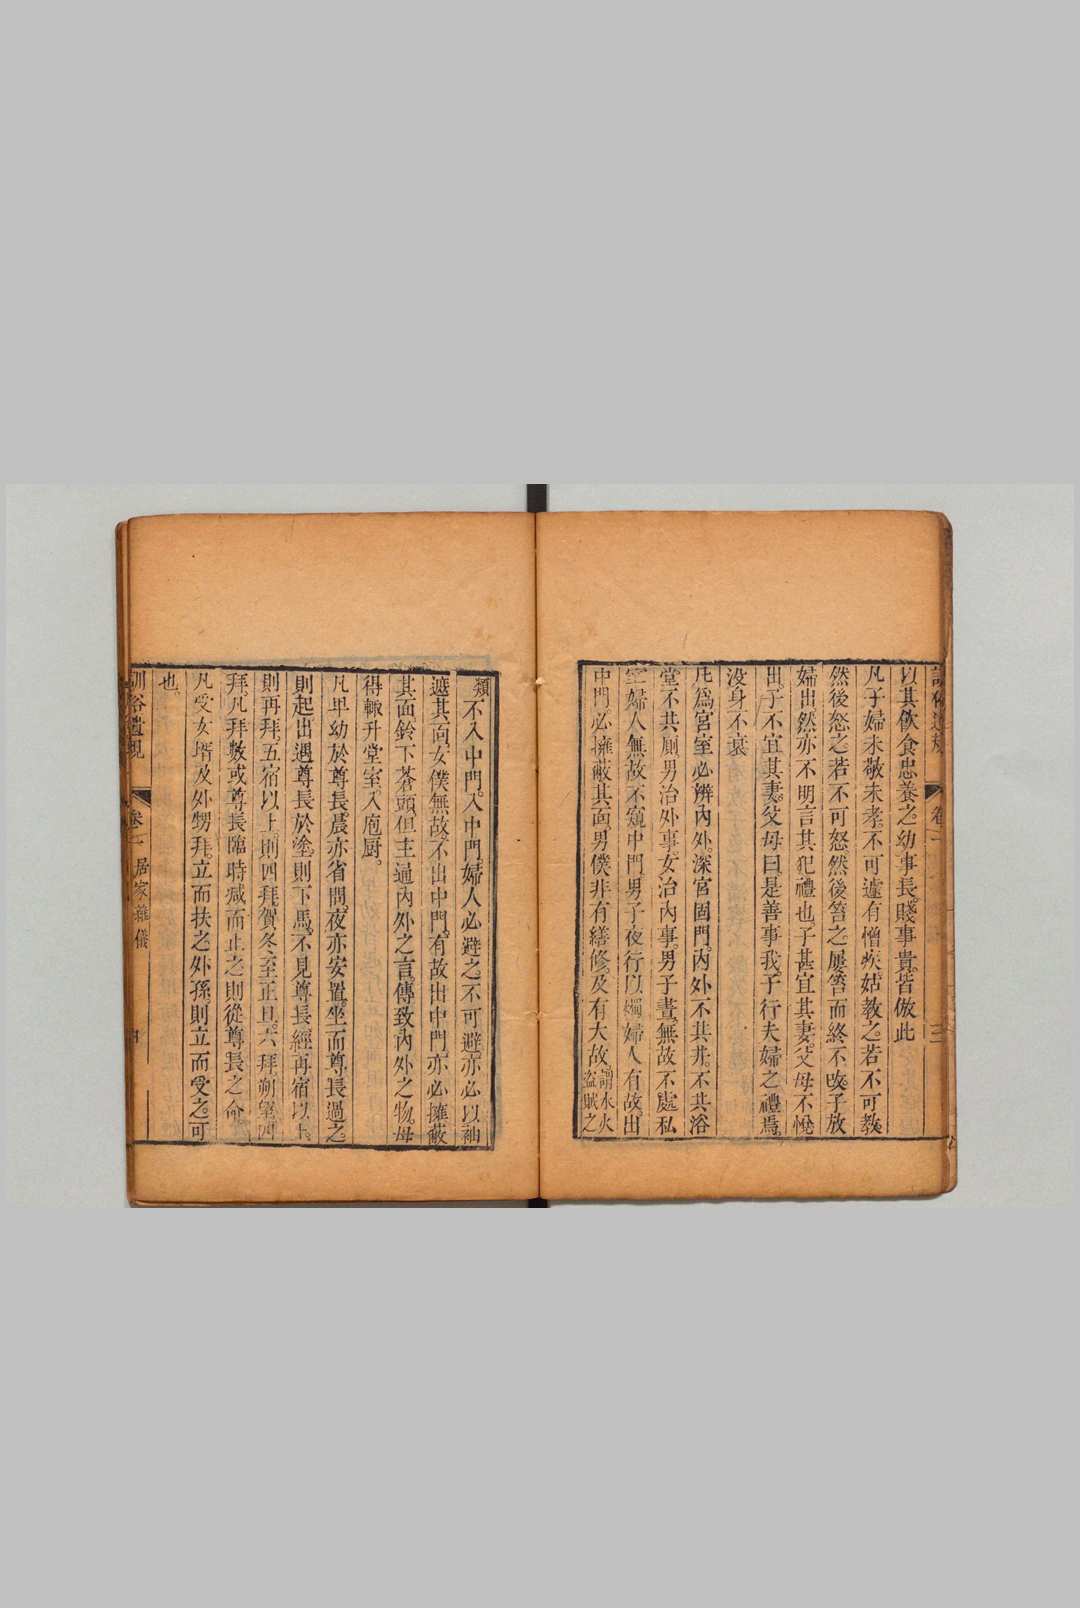 訓俗遺規 卷一 三
以其飲食忠養之幼事長。賤事貴。皆倣此
凡子婦未敬未孝。不可遽有憎疾。姑教之。若不可教
然後怒之。若不可怒。然後笞之。屢笞而終不改。子放
婦出。然亦不明言其犯禮也。子甚宜其妻。父母不悅
出。子不宜其妻。父母曰是善事我。子行夫婦之禮焉。
沒身不衰
凡爲宮室。必辨內外。深宮固門。內外不共井。不共浴
堂。不共厠。男治外事。女治內事。男子晝無故不處私
室。婦人無故不窺中門。男子夜行以燭。婦人有故。出
中門必擁蔽其面。男僕非有繕修。及有大故。謂水火盜賊之
類不入中門。入中門。婦人必避之。不可避。亦必以袖
遮其面。女僕無故。不出中門。有故出中門。亦必擁蔽
其面。鈴下蒼頭但主通內外之言。傳致內外之物。毋
得輒升堂室。入庖厨。
凡卑幼於尊長。晨亦省問。夜亦安置。坐而尊長過之。
則起。出遇尊長於塗。則下馬。不見尊長經再宿以上。
則再拜。五宿以上。則四拜。賀冬至正旦。六拜。朔望四
拜。凡拜數或尊長臨時减而止之。則從尊長之命。
凡受女壻及外甥拜。立而扶之。外孫。則立而受之。可
也。
訓俗遺規 卷一 居家雜儀